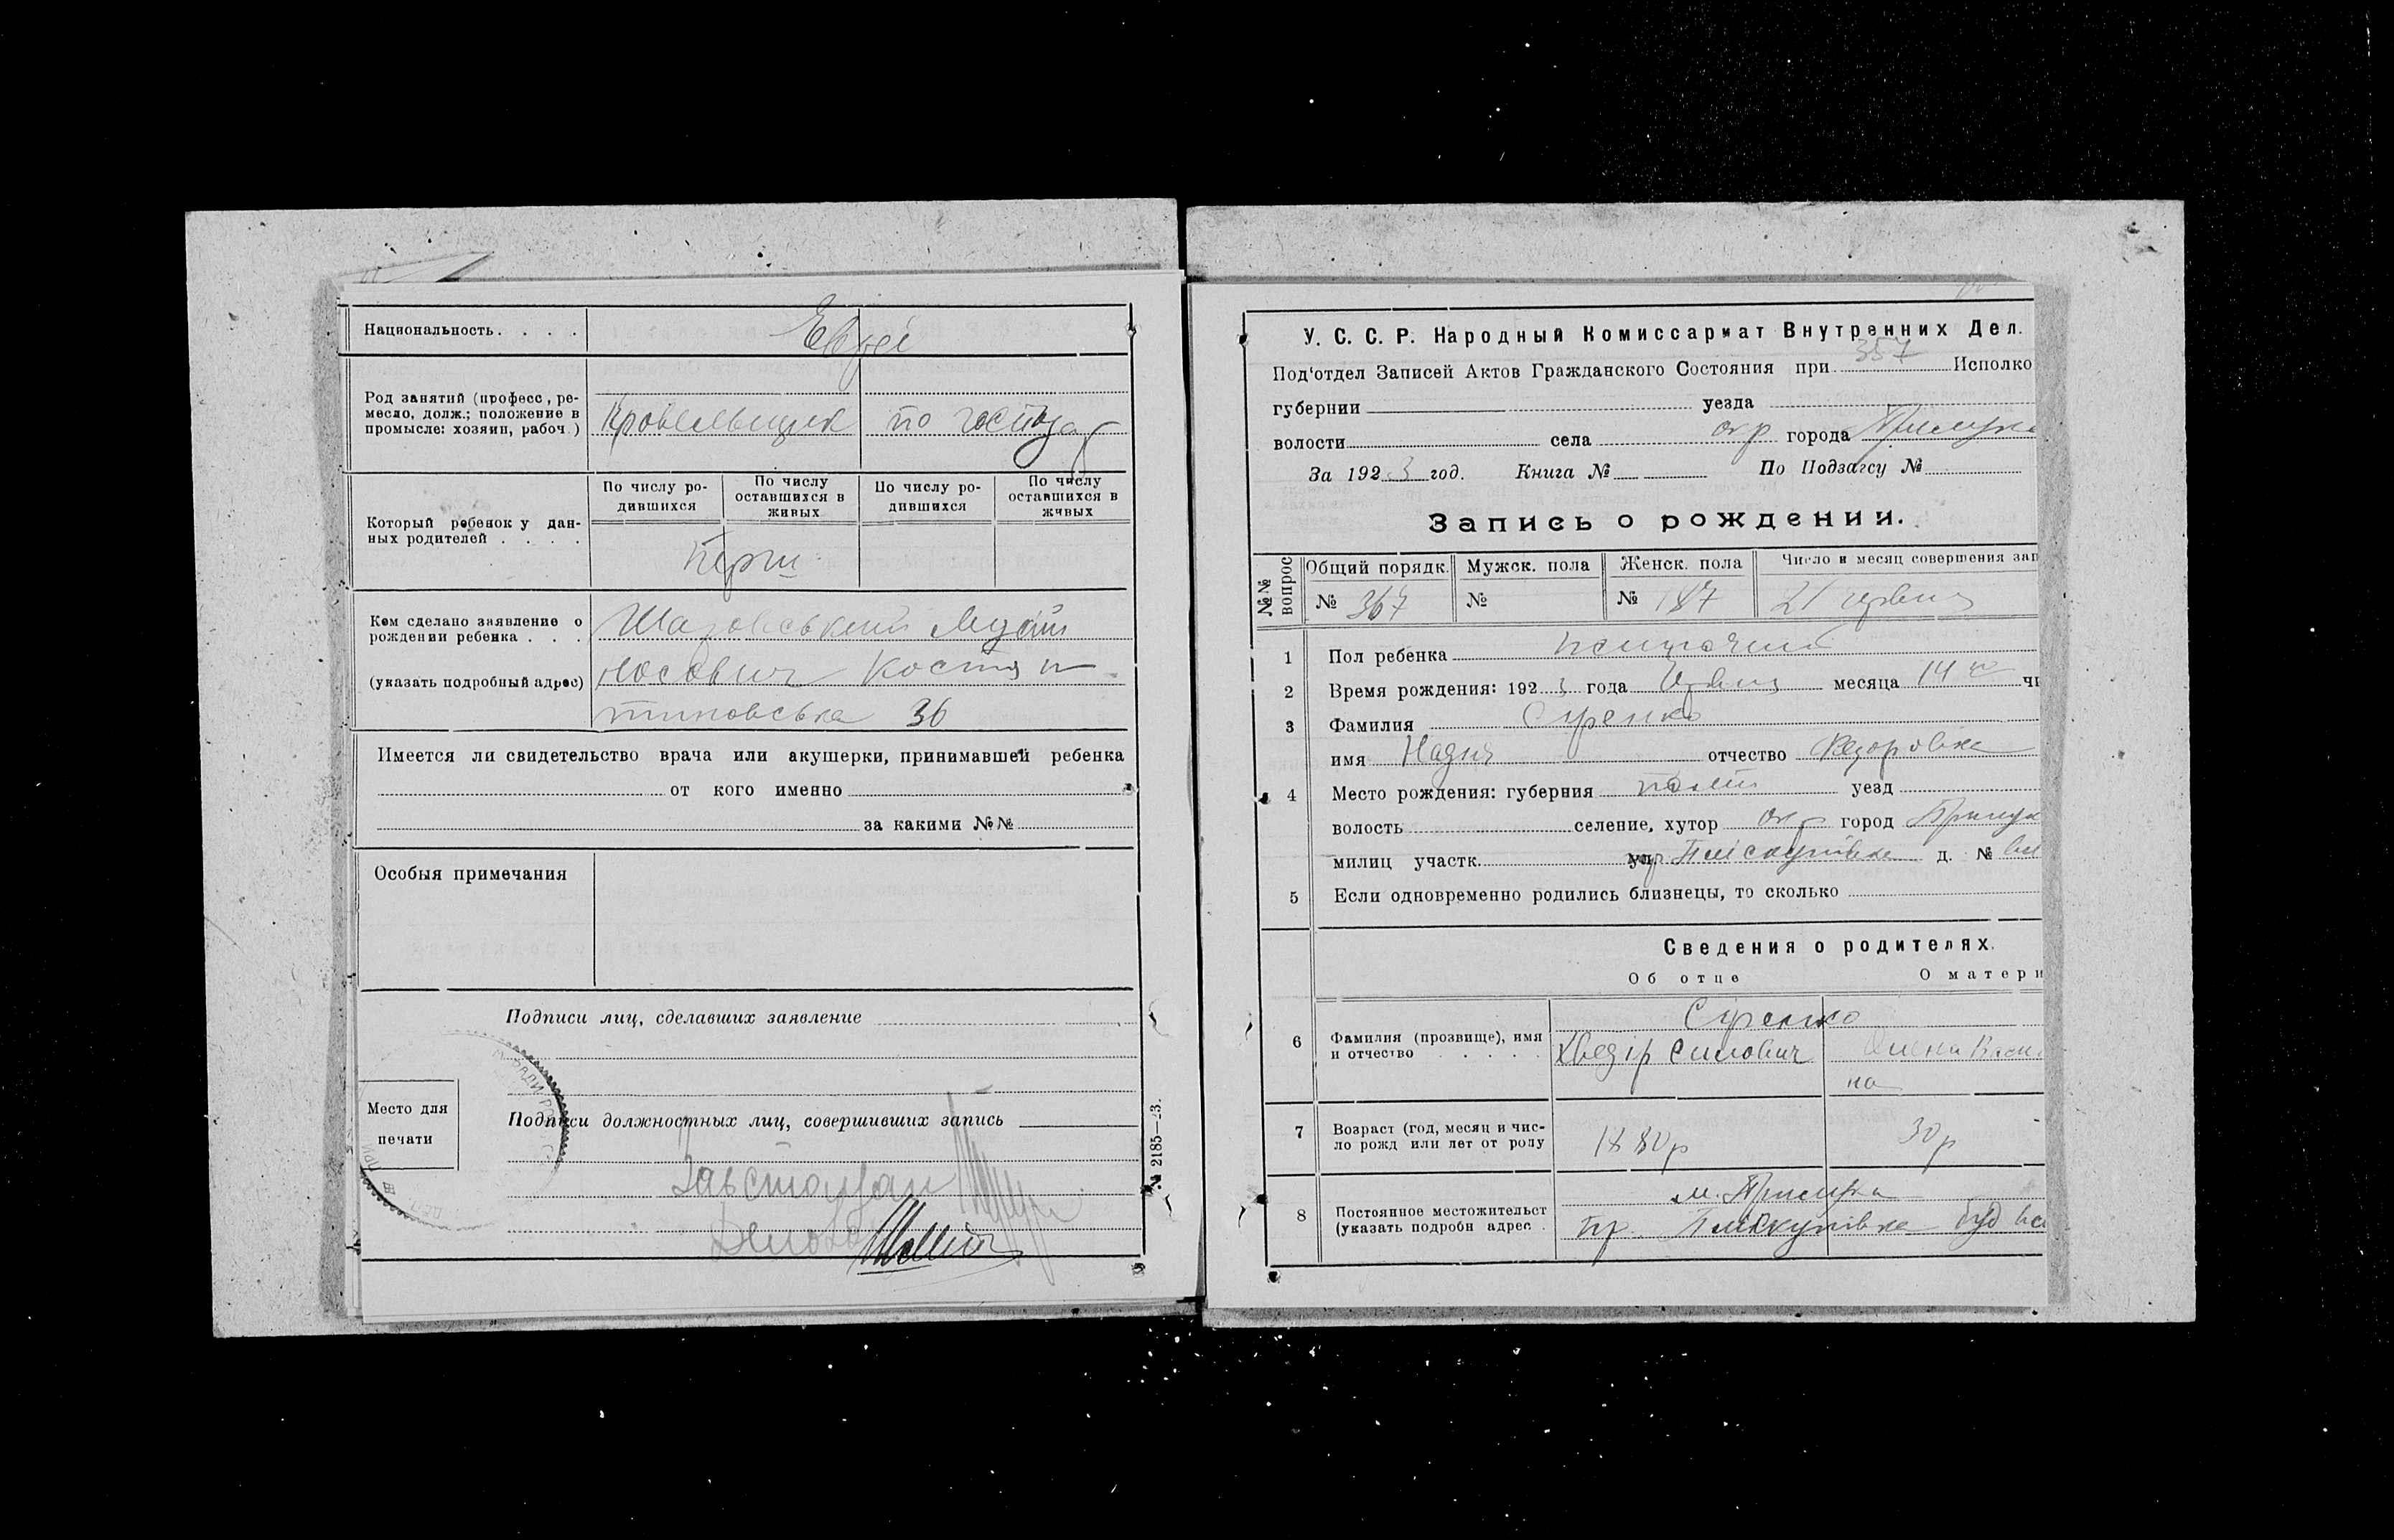 Национальность. . . . Евреї
Род занятий (професс, ре-
месло, долж.; положение в
промысле: хозяин, рабоч.)
Кровельщик по господ
По числу ро-
дившихся
По числу
оставшихся в
живых
По числу ро-
дившихся
По числу
оставшихся в
живых
Который ребенок у дан-
ных родителей . . . .
Перш
Кем сделано заявление о
рождении ребенка . . .
(указать подробный адрес)
Костян
тиновська 36
Имеется ли свидетельство врача или акушерки, принимавшей ребенка
от кого именно
за какими №№
Особыя примечания
Подписи лиц, сделавших заявление
Место для
печати
Подписи должностных лиц, совершивших запись
Завстолом
Діловод
№ 2185—23.
У. С. С. Р. Народный Комиссариат Внутренних Дел.
Под'отдел Записей Актов Гражданского Состояния при 357 Исполко
губернии уезда
волости села окр города Прилука
За 1923 год. Книга № По Подзагсу №
Запись о рождении.
№№
вопрос
Общий порядк.
№ 367
Мужск. пола
№
Женск. пола
№ 187
Число и месяц совершения зап
21 червня
1 Пол ребенка жіночий
2 Время рождения: 1923 года Червня месяца 14 чи
3 Фамилия Сиренко
имя Надія отчество Федоровна
4 Место рождения: губерния полт уезд
волость селение, хутор окр город Прилук
милиц участк. ул. Плискунівка д. № вл
5 Если одновременно родились близнецы, то сколько
Сведения о родителях.
Об отце О матери
6 Фамилия (прозвище), имя
и отчество . . . . .
Сиренко
Хведір Силович Олена Васи
на
7 Возраст (год, месяц и чис-
ло рожд или лет от роду
1880р 30р
8 Постоянное местожительст
(указать подробн адрес .
м. Прилука
пр. Плискунівка буд вл